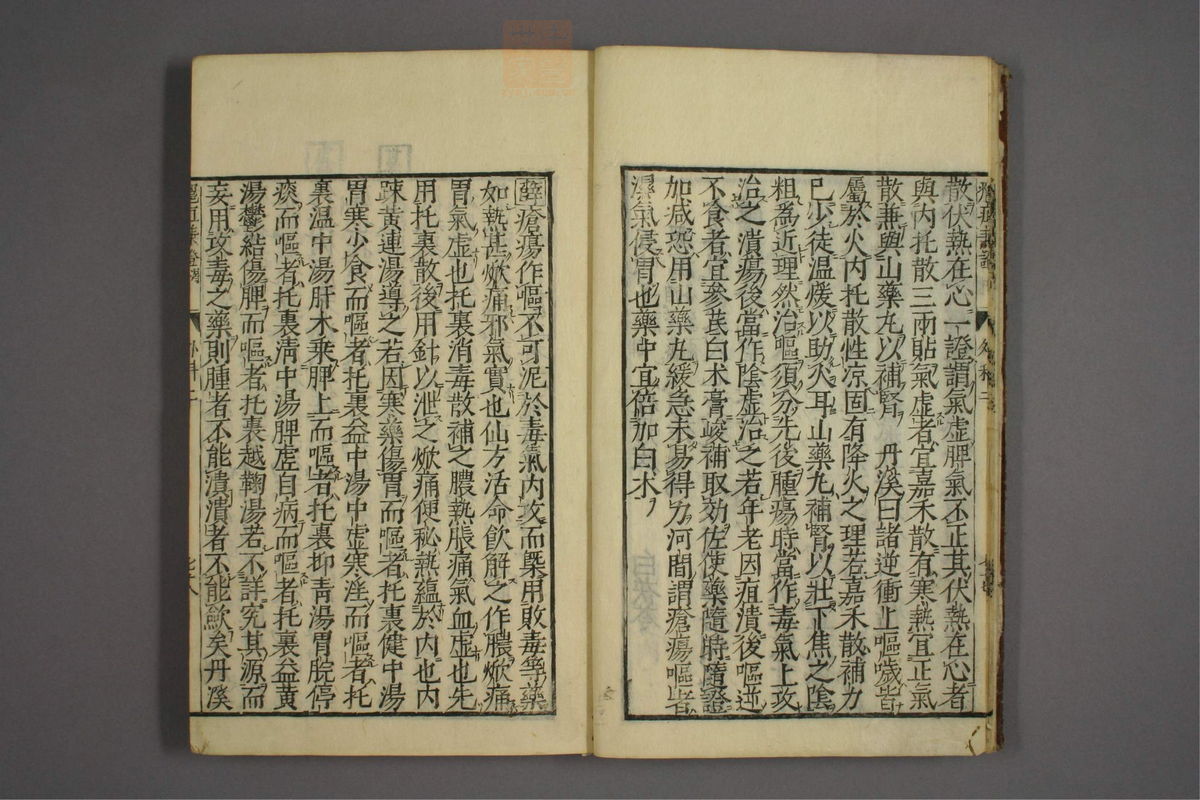 散伏熱在心一證謂氣虛脾氣不正其伏熱在心者
與内托散三兩貼氣虛者宜嘉禾散有寒熱宜正氣
散兼與山藥丸以補腎 丹溪曰諸逆衝上嘔噦皆
屬於火内托散性凉固有降火之理若嘉禾散補力
已少徒温煖以助火耳山藥丸補腎以壯下焦之陰
粗爲近理然治嘔須分先後腫瘍時當作毒氣上攻
治之潰瘍後當作陰虛治之若年老因疽潰後嘔逆
不食者宜參芪白术膏峻補取効佐使藥隨時隨證
加减恐用山藥丸緩急未易得力河間謂瘡瘍嘔者
濕氣侵胃也藥中宜倍加白术
薛瘡瘍作嘔不可泥於毒氣内攻而槩用敗毒等藥
如熱甚焮痛邪氣實也仙方活命飲解之作膿焮痛
胃氣虛也托裏消毒散補之膿熟脹痛氣血虛也先
用托裏散後用針以泄之焮痛便秘熱蘊於内也内
踈黄連湯導之若因寒藥傷胃而嘔者托裏健中湯
胃寒少食而嘔者托裏益中湯中虛寒淫而嘔者托
裏温中湯肝木乘脾土而嘔者托裏抑青湯胃脘停
痰而嘔者托裏清中湯脾虛自病而嘔者托裏益黄
湯鬱結傷脾而嘔者托裏越鞠湯若不詳究其源而
妄用攻毒之藥則腫者不能潰潰者不能歛矣丹溪